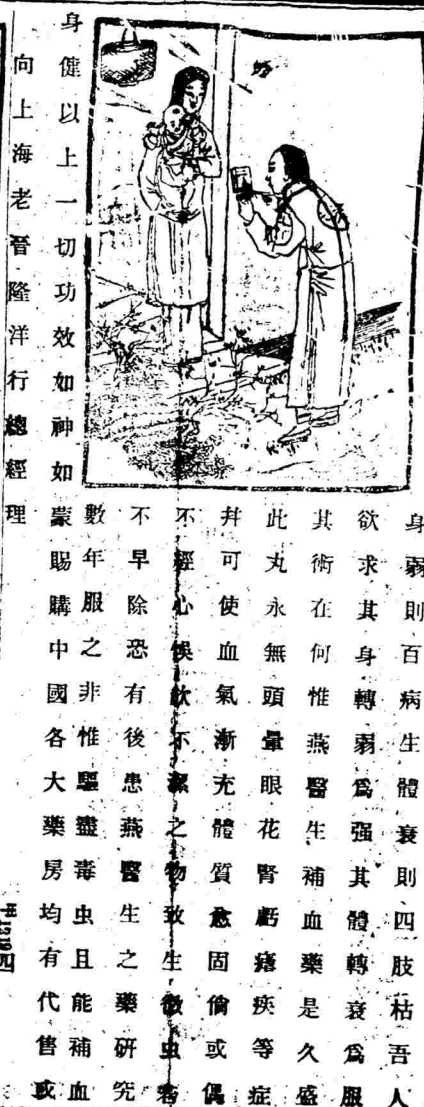 身弱則百病生體衰則四肢枯吾人
欲求其身轉弱爲强其體轉衰爲服
其術在何惟燕醫生補血藥是久盛
此丸永無頭暈眼花腎虧瘧疾等症
幷可使血氣漸充體質愈固倘或偶
不經心悞飲不潔之物致生微虫害
不早除恐有後患燕醫生之藥研究
數年服之非惟驅盡毒虫且能補血
身健以上一切功效如神如蒙賜購中國各大藥房均有代售或
向上海老晋隆洋行總經理
四